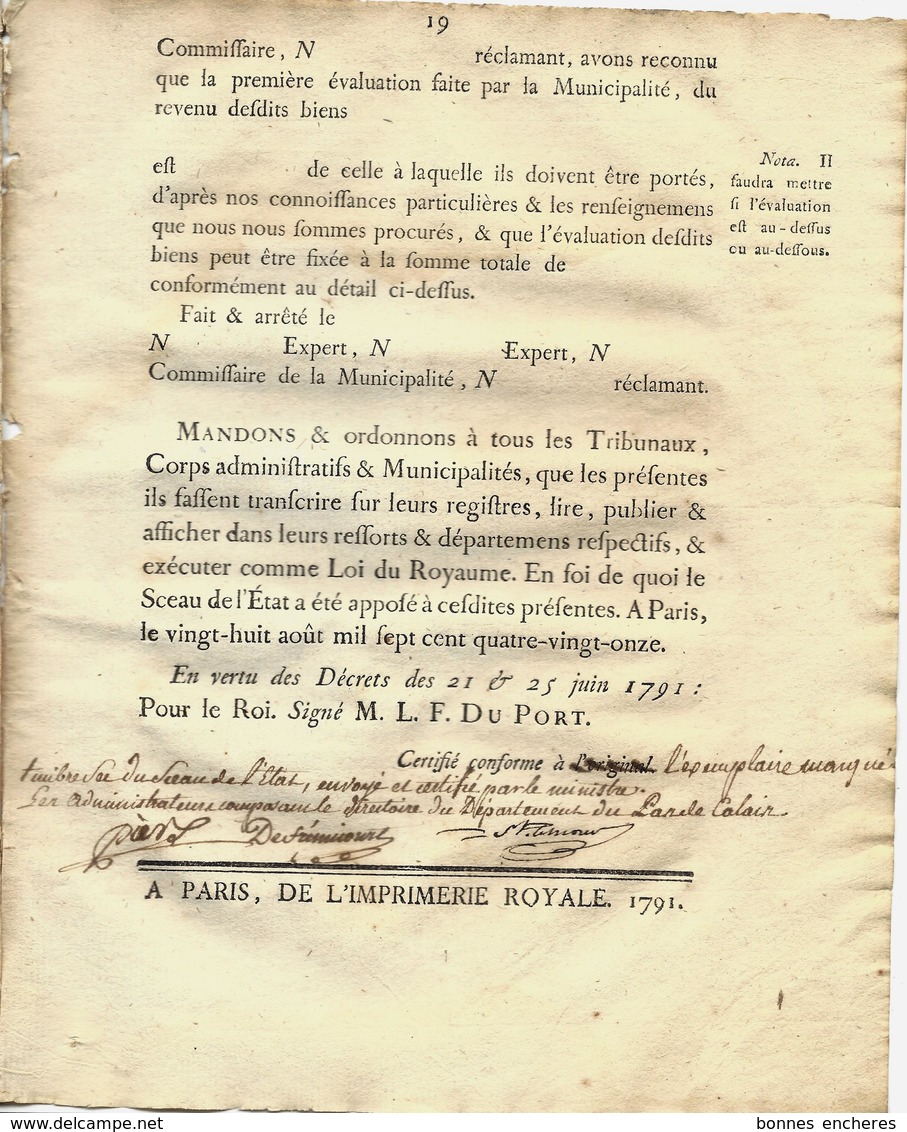 19
Commiſſaire, N réclamant, avons reconnu
que la première évaluation faite par la Municipalité, du
revenu deſdits biens
eſt de celle à laquelle ils doivent être portés,
d'après nos connoiſſances particulières & les renſeignemens
que nous nous ſommes procurés, & que l'évaluation deſdits
biens peut être fixée à la ſomme totale de
conformément au détail ci-deſſus.
Nota. Il
faudra mettre
ſi l'évaluation
eſt au-deſſus
ou au-deſſous.
Fait & arrêté le
N Expert, N Expert, N
Commiſſaire de la Municipalité, N réclamant.
MANDONS & ordonnons à tous les Tribunaux,
Corps adminiſtratifs & Municipalités, que les préſentes
ils faſſent tranſcrire ſur leurs regiſtres, lire, publier &
afficher dans leurs reſſorts & départemens reſpectifs, &
exécuter comme Loi du Royaume. En foi de quoi le
Sceau de l'État a été appoſé à ceſdites préſentes. A Paris,
le vingt-huit août mil ſept cent quatre-vingt-onze.
En vertu des Décrets des 21 & 25 juin 1791 :
Pour le Roi. Signé M. L. F. DU PORT.
Certifié conforme à l'original l'exemplaire marqué
timbre Sec du Sceau de l'Etat, envoyé et certifié par le ministre.
Les administrateurs composant le directoire du Département du Pas de Calais
A PARIS, DE L'IMPRIMERIE ROYALE. 1791.
www.delcampe.net
bonnes encheres